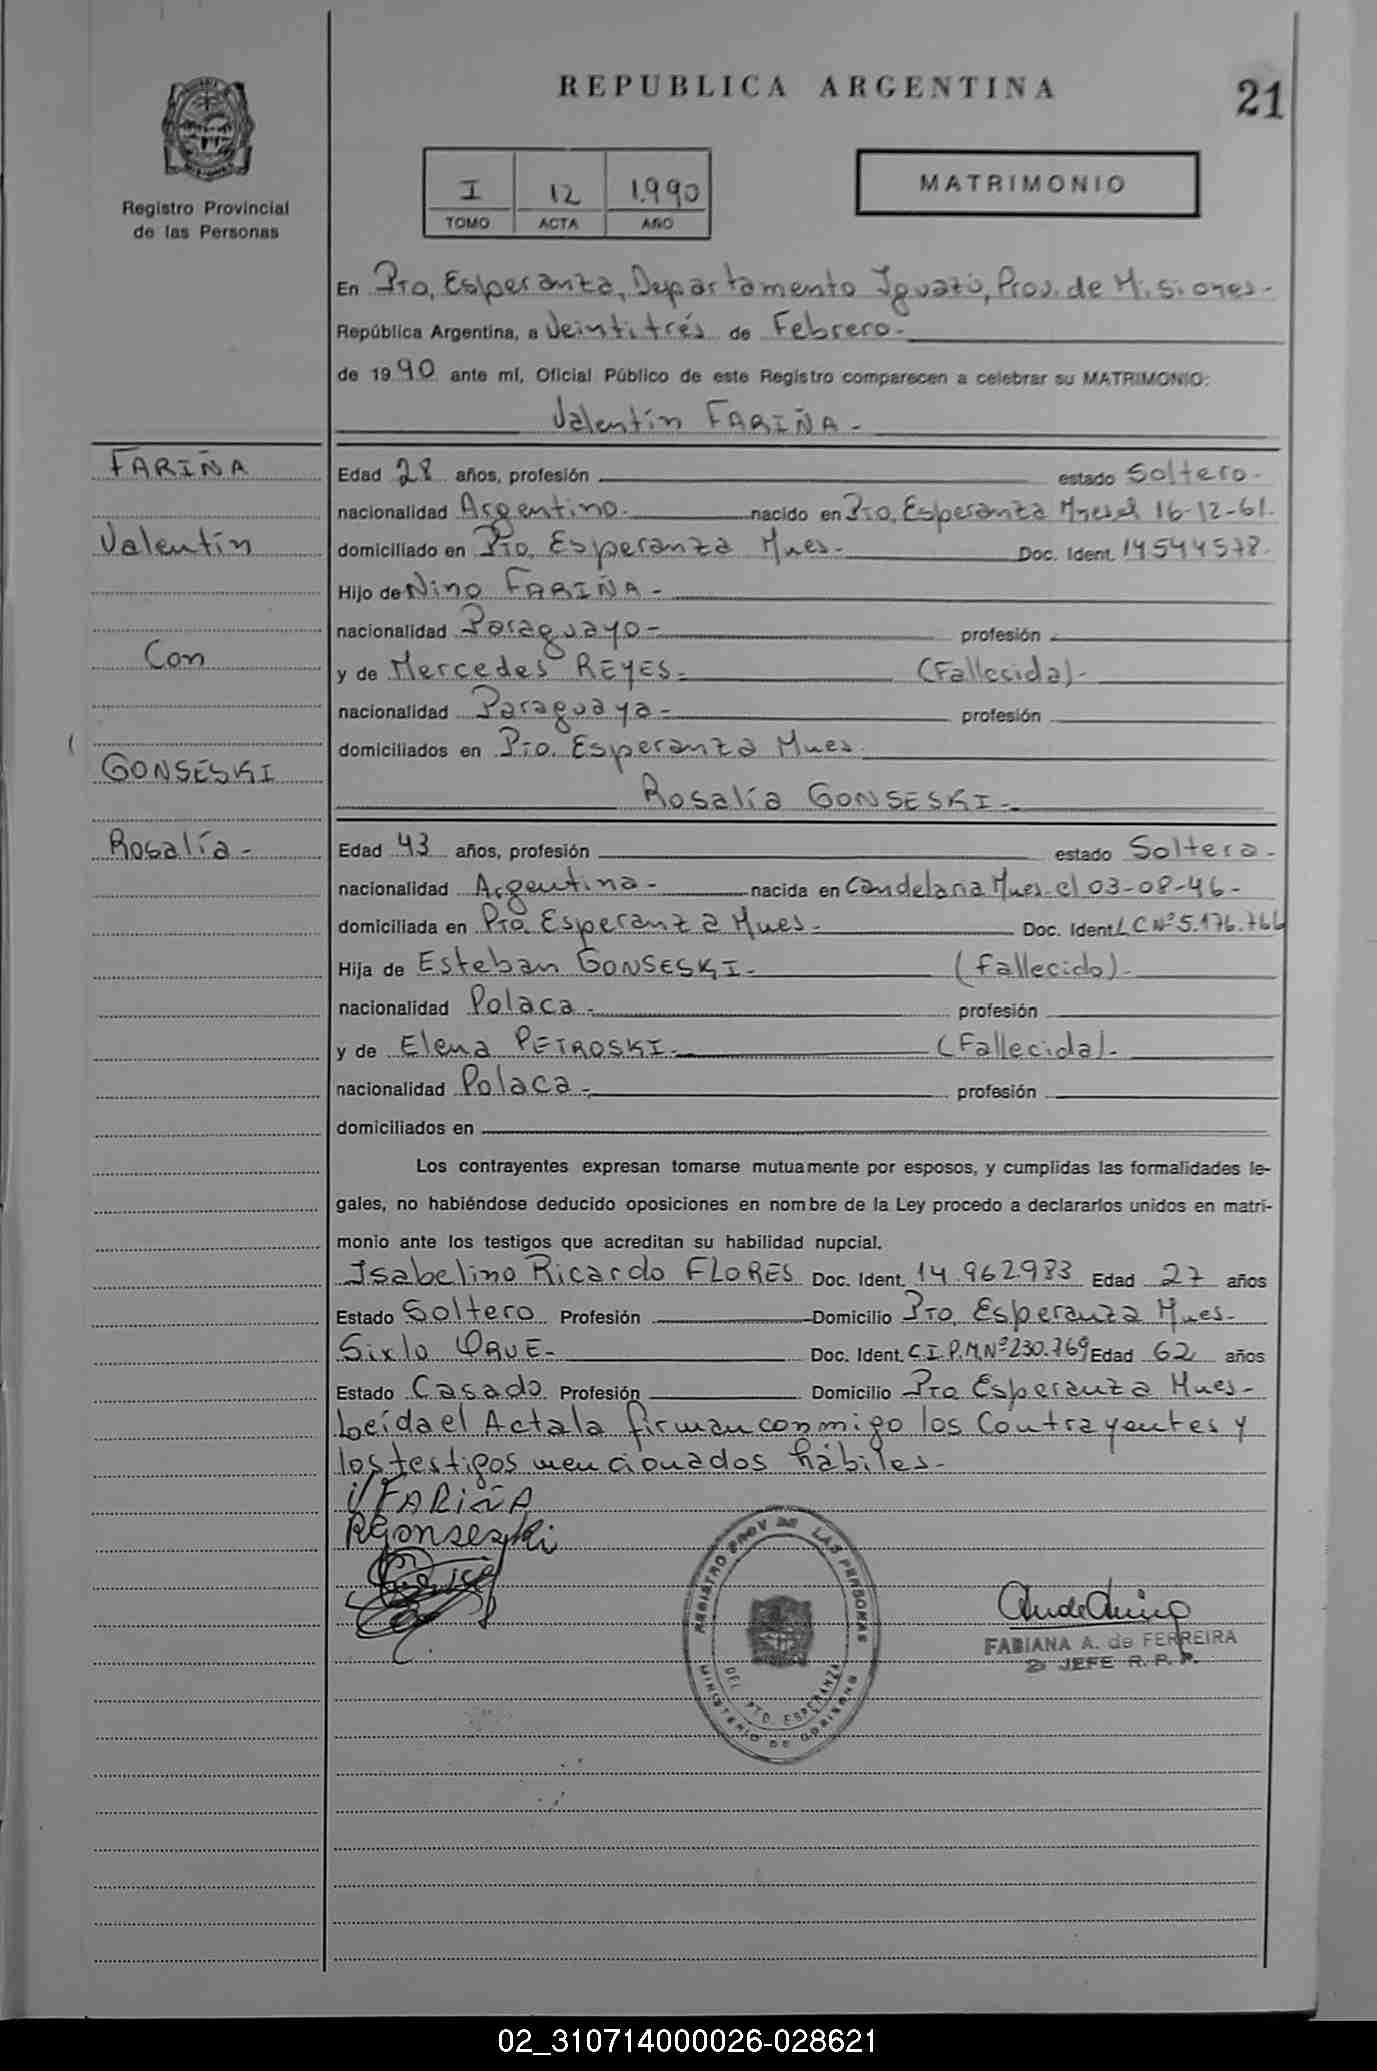 REPUBLICA ARGENTINA
21
Registro Provincial
de las Personas
I 12 1.990
TOMO ACTA AÑO
MATRIMONIO
En Pto, Esperanza, Departamento Iguazú, Prov. de Misiones-
República Argentina, a Veintitrés de Febrero-
de 1990 ante mí, Oficial Público de este Registro comparecen a celebrar su MATRIMONIO:
Valentín FARIÑA-
FARIÑA
Valentín
Con
GONSESKI
Rosalía-
Edad 28 años, profesión estado Soltero-
nacionalidad Argentino- nacido en Pto, Esperanza Mnes el 16-12-61.
domiciliado en Pto. Esperanza Mnes- Doc. Ident. 14544578-
Hijo de Nino FARIÑA-
nacionalidad Paraguayo- profesión
y de Mercedes REYES- (Fallecida)-
nacionalidad Paraguaya- profesión
domiciliados en Pto. Esperanza Mnes.
Rosalía GONSESKI-
Edad 43 años, profesión estado Soltera-
nacionalidad Argentina- nacida en Candelaria Mnes el 03-08-46-
domiciliada en Pto. Esperanza Mnes- Doc. Ident. LC Nº 5.176.766
Hija de Esteban GONSESKI- (fallecido)-
nacionalidad Polaca- profesión
y de Elena PETROSKI- (Fallecida)-
nacionalidad Polaca- profesión
domiciliados en
Los contrayentes expresan tomarse mutuamente por esposos, y cumplidas las formalidades le-
gales, no habiéndose deducido oposiciones en nombre de la Ley procedo a declararlos unidos en matri-
monio ante los testigos que acreditan su habilidad nupcial.
Isabelino Ricardo FLORES Doc. Ident. 14.962.983 Edad 27 años
Estado Soltero Profesión Domicilio Pto, Esperanza Mnes-
Sixto ORUE- Doc. Ident. C.I.P.M.Nº 230.769 Edad 62 años
Estado Casado Profesión Domicilio Pto Esperanza Mnes-
Leída el Acta la firman conmigo los Contrayentes y
los testigos mencionados hábiles-
V FARIÑA
RGonseski
REGISTRO PROV DE LAS PERSONAS
DEL PTO. ESPERANZA
MINISTERIO DE GOBIERNO
FABIANA A. de FERREIRA
2º JEFE R. P. P.
02_310714000026-028621